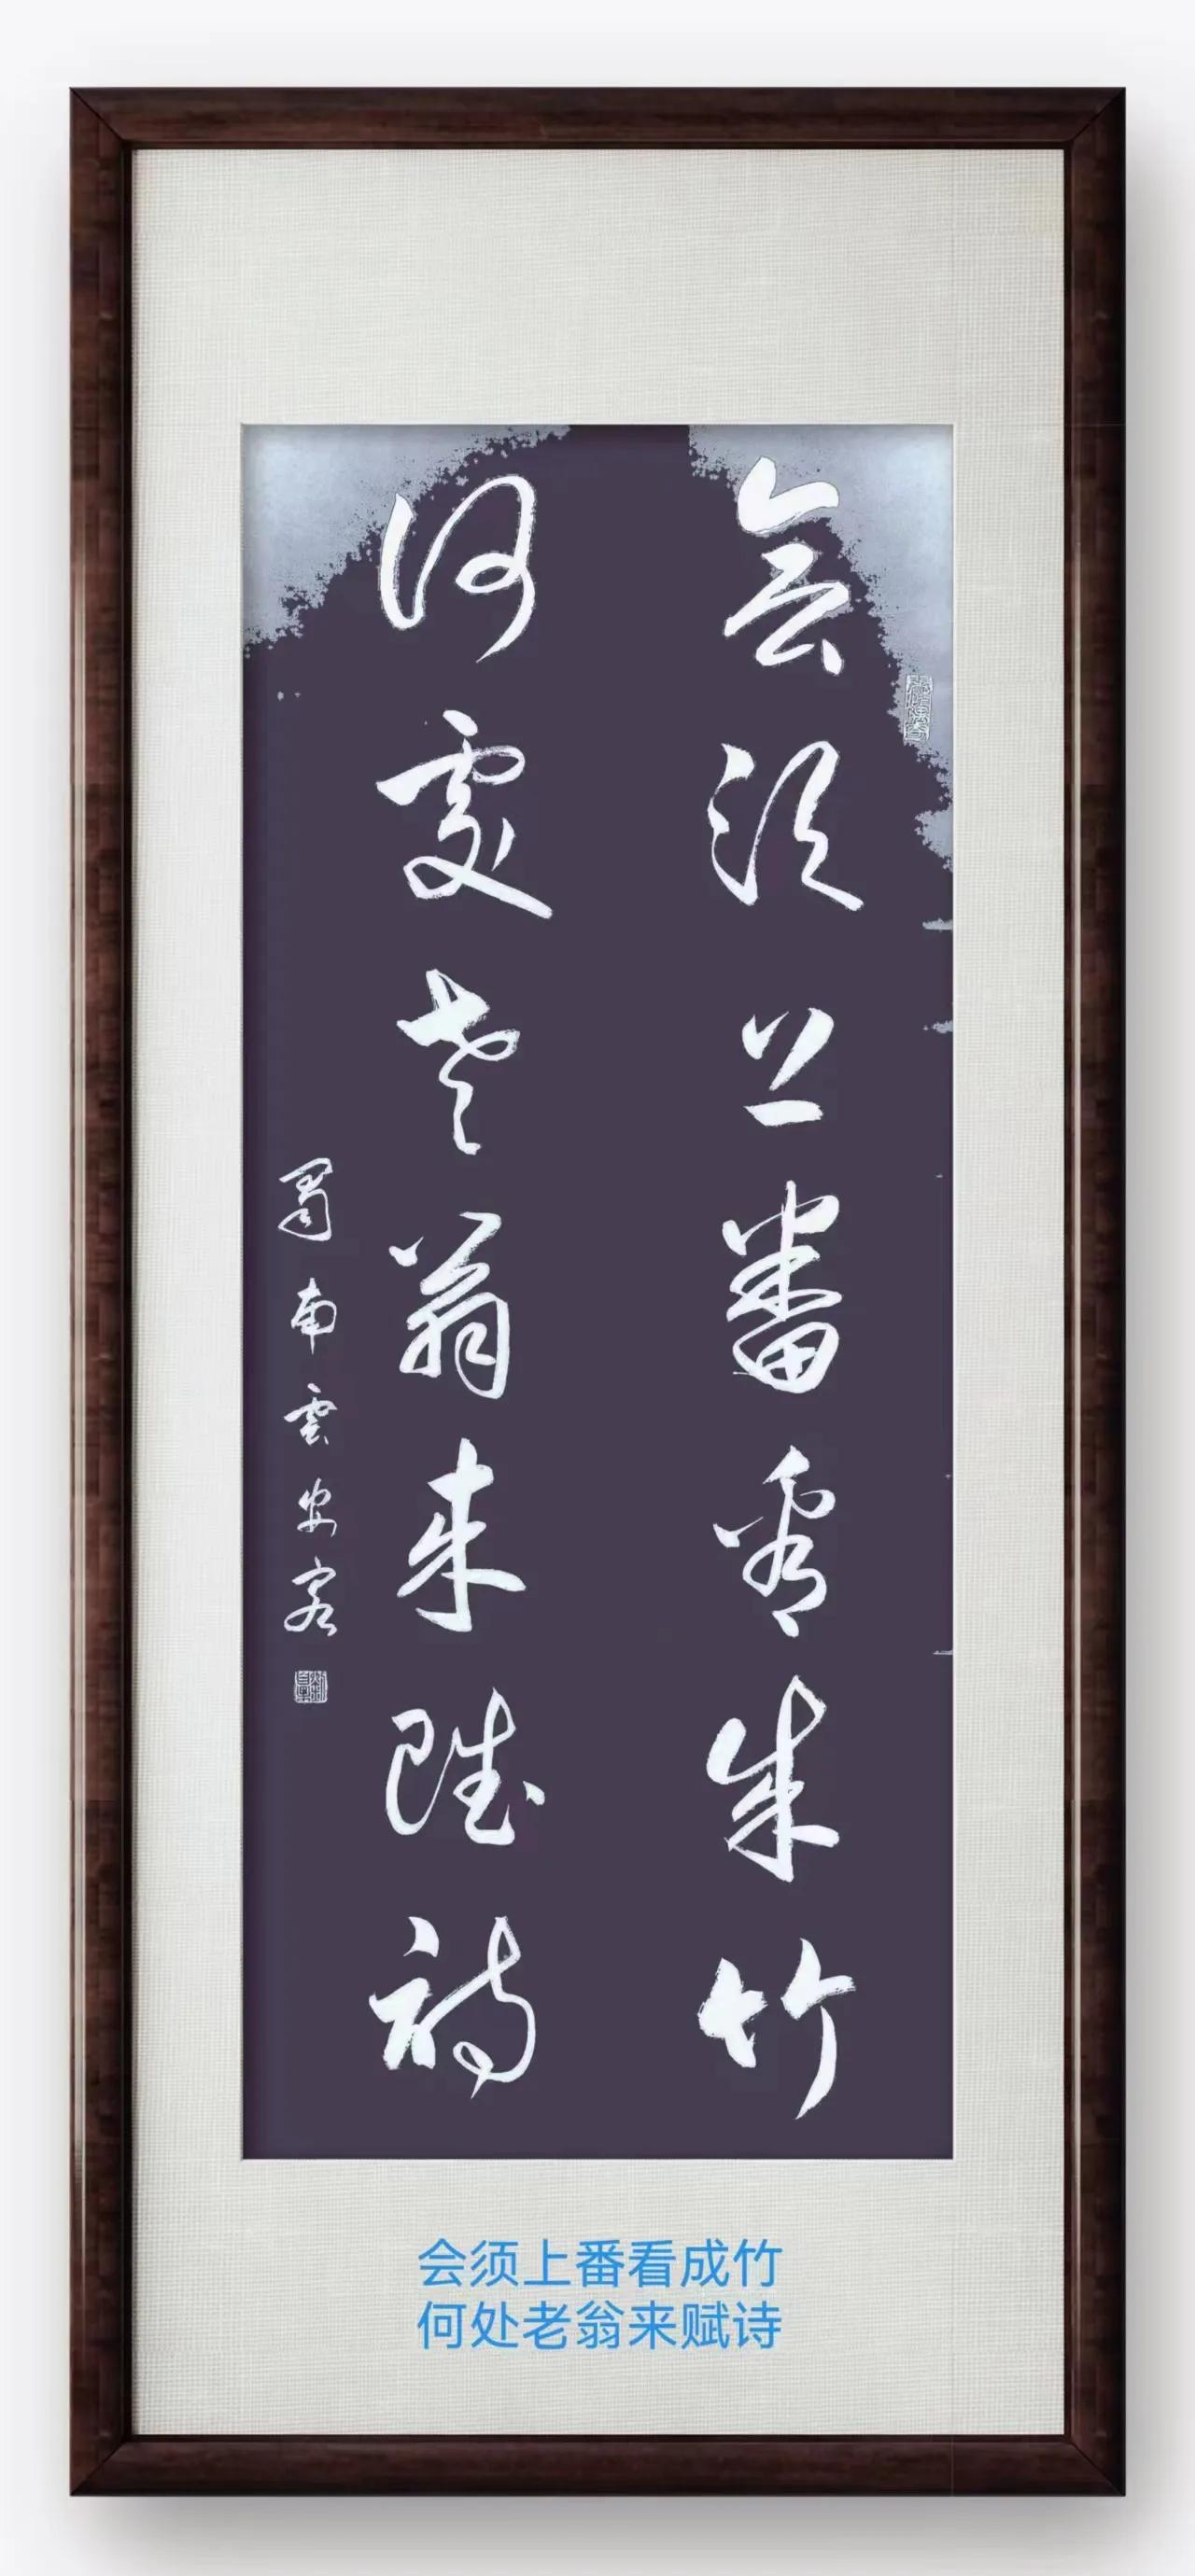 会须上番看成竹
何處老翁来賦詩
蜀南雲安客
会须上番看成竹
何处老翁来赋诗